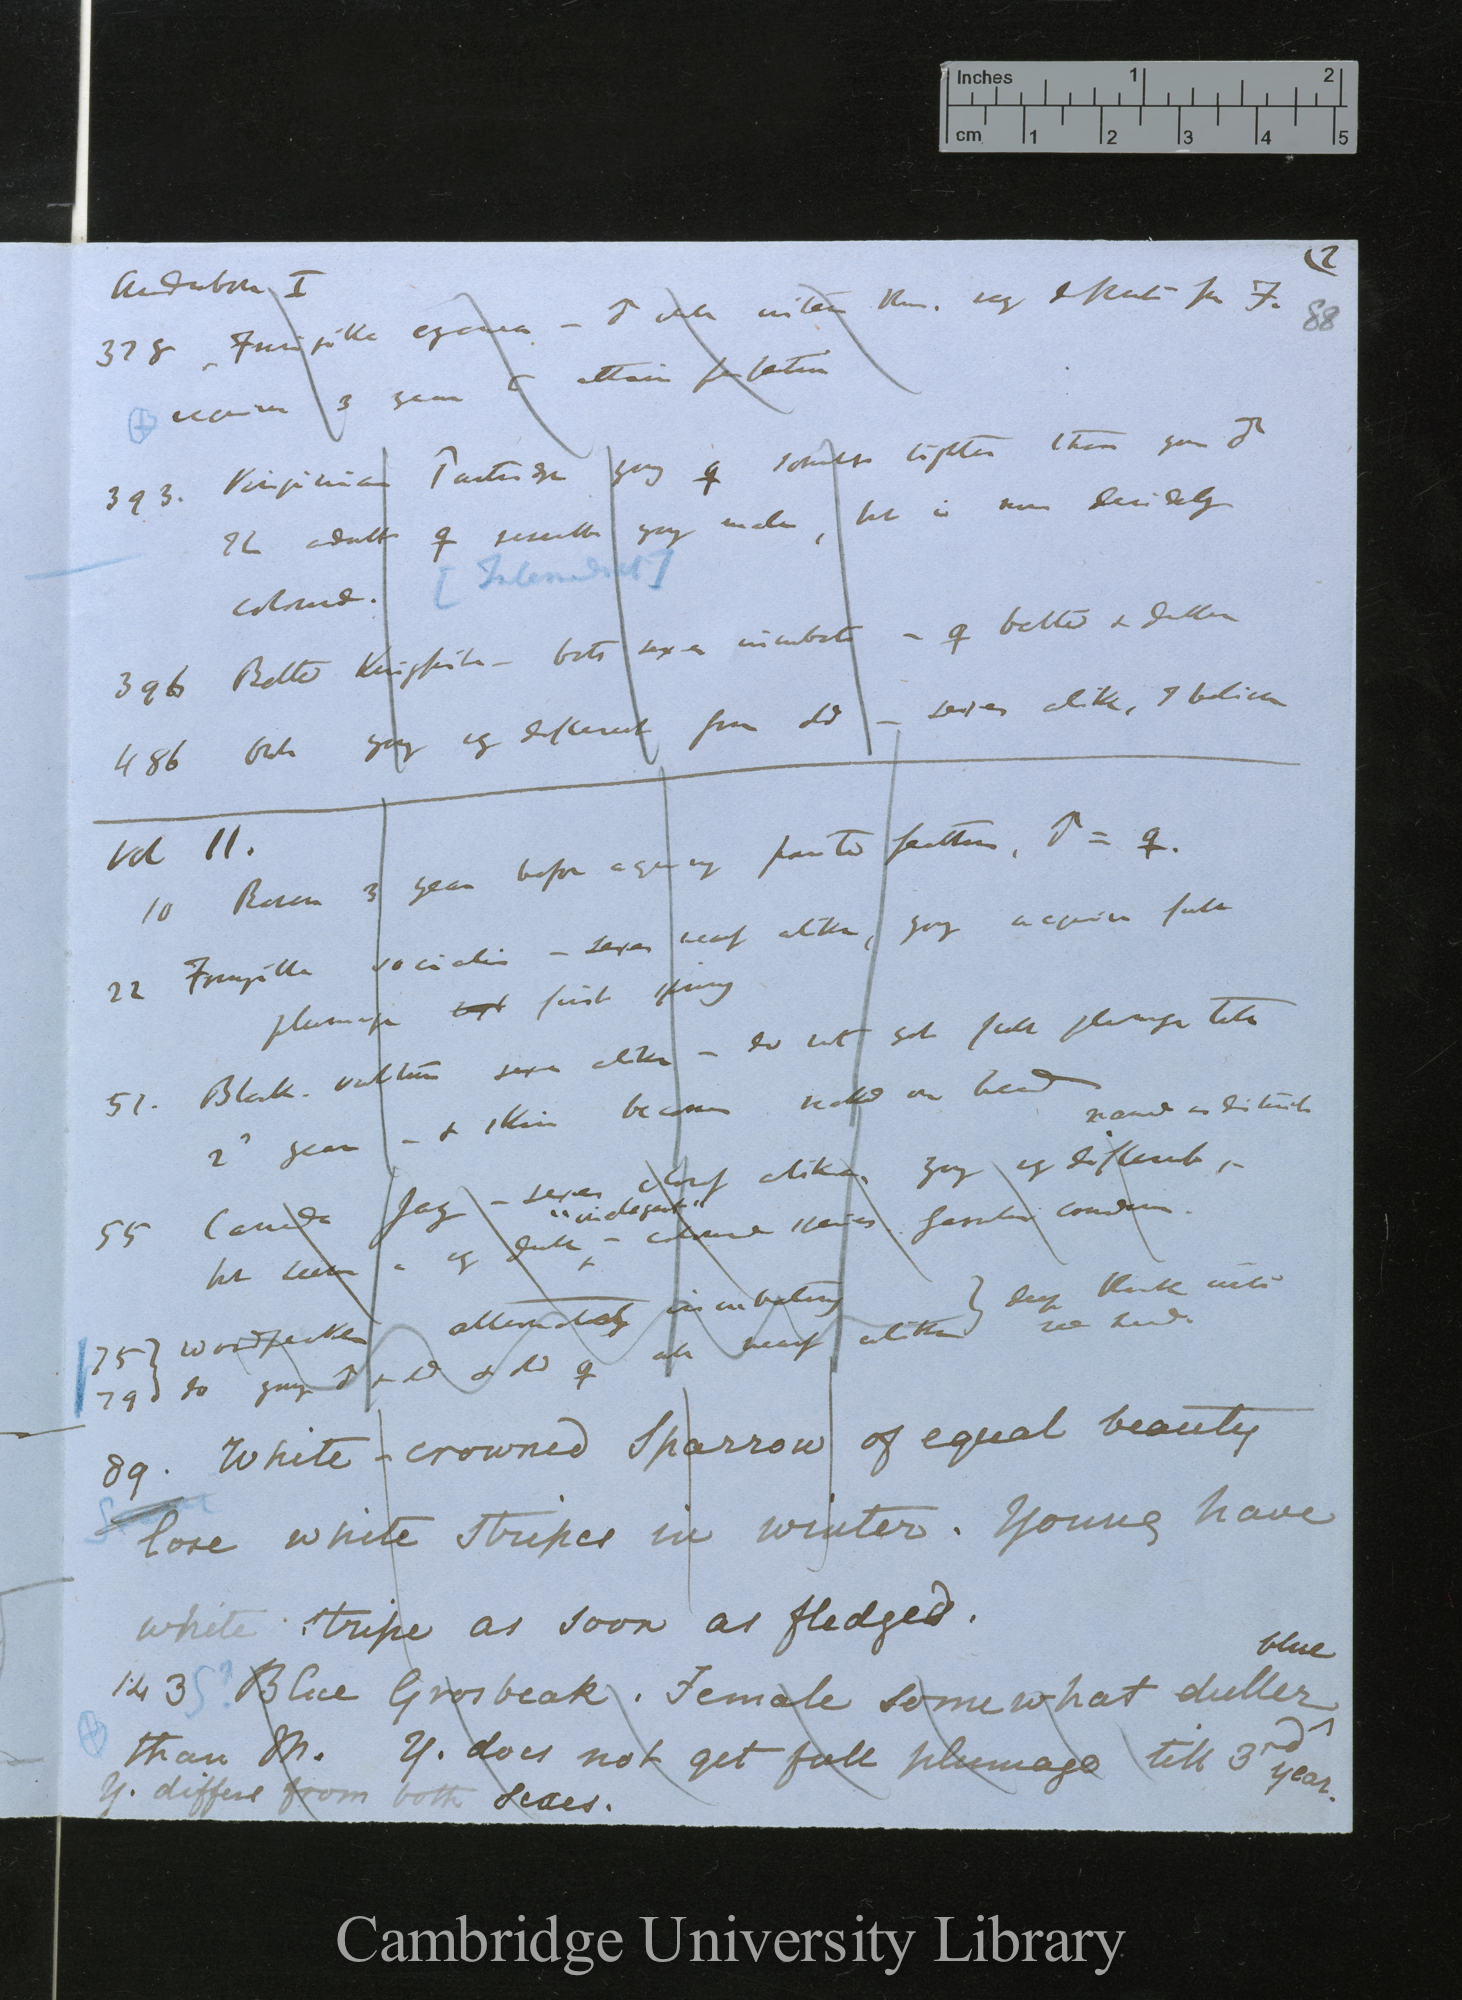 Inches 1 2
cm 1 2 3 4 5
(2
88
Audubon I
378 Fringilla cyanea — ♂ in winter from F.
requires 3 years to attain perfection
393. Virginian Partridge young ♀ somewhat lighter than young ♂
The adult ♀ resembles young males, but is more decidedly
coloured. [Intermediate]
396 Belted Kingfisher — both sexes incubate — ♀ belted & duller
486 Owls young very different from old — sexes alike, I believe
Vol II.
10 Raven 3 years before acquiring pointed feathers, ♂ = ♀.
22 Fringilla socialis — sexes nearly alike, young acquires full
plumage first spring
51. Black vulture sexes alike — do not get full plumage till
2d year — & skin becomes naked on head
named as distinct
55 Canada Jay — sexes closely alike, young very different,
"inelegant"
but seems very dark, — coloured species Garrulus canadensis.
75} woodpecker alternately incubating } deep black into
79} do young ♂ & old & old ♀ all nearly alike } red head.
89. White-crowned Sparrow of equal beauty
lose white stripes in winter. Young have
white stripe as soon as fledged.
blue
143 S? Blue Grosbeak. Female somewhat duller
than M. Y. does not get full plumage till 3rd year.
Y. differs from both sexes.
Cambridge University Library